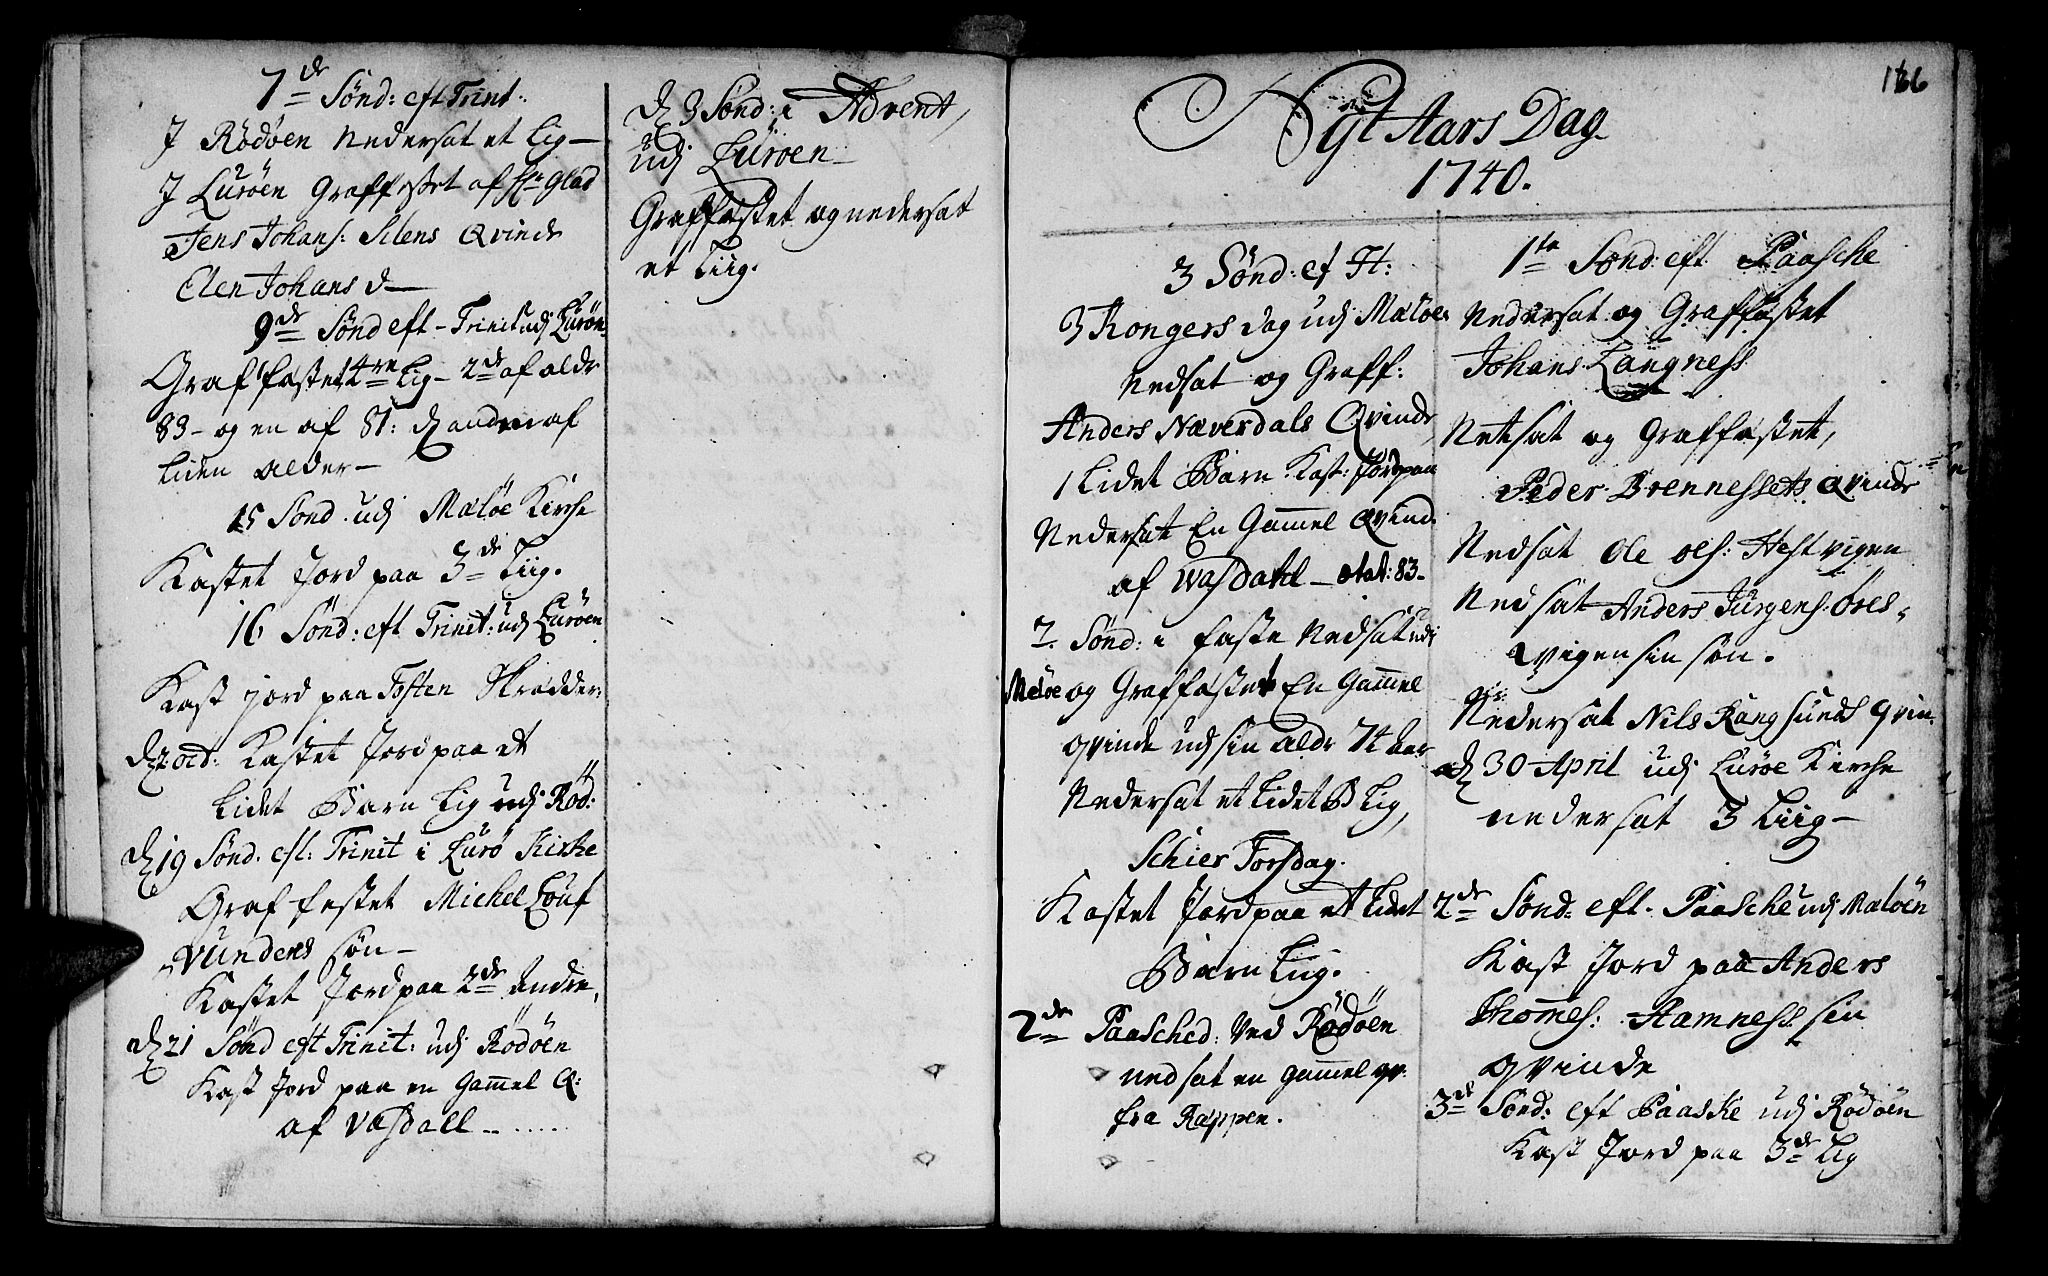 7de Sønd: eft Trint:
J Rødøen Nedersat et Lig –
J Lurøen Graffestet af Hr Glad
Jens Johans: Silens Qvinde
Elen Johans d –
9de Sønd eft – Trinit udj Lurøn
Graf fæstet 4re Lig – 2de af aldr
83 – og en af 81: d andre af
Liden alder –
15 Sønd. udj Meløe Kirche
Kastet Jord paa 3de Liig.
16 Sønd: eft Trinit: udj Lurøen
Kast jord paa Tosten Skrædder:
d 2 oct: Kastet Jord paa et
Lidet Barn Lig udj Rød:
d 19 Sønd. eft: Trinit i Lurø Kirke
Graf festet Michel Louf
vundens søn –
Kastet Jord paa 2de Andre,
d 21 Sønd eft Trinit: udj Rødøen
Kast Jord paa en Gammel Q:
af Vasdall .. .....
d 3 Sønd: i Advent,
udj Lurøen –
Graffæstet og nedersat
et Liig.
166
Nyt Aars Dag
1740.
3 Sønd: ef H:
3 Kongers dag udj Meløe
Nedsat og Graff:
Anders Næverdals Qvinde,
1 Lidet Barn Kast: Jord paa
Nedersat En Gammel Qvind.
af Wasdahl – ætat: 83 –
7. Sønd: i faste Nedsat udj
Meløe og Graffæstet En Gammel
qvinde udj sin aldr 74 aar
Nedersat et Lidet B Lig,
Schier Torsdag.
Kastet Jord paa et Lidet
Barn Liig.
2de Paasched: Ved Rødøen
nedsat en gammel qv:
fra Ræppen.
1te Sønd: eft Paasche
Nedersat og Graffæstet
Johans Langness
Netsat og Graffæstet,
Peder Brennessets qvinde
Nedsat Ole Ols: Hestvigen
Nedsat Anders Jürgens: Øres-
qvigen sin søn.
Nedersat Nils Rangsunds qvin:
d 30 April udj Lurøe Kirche
nedersat 3 Liig –
2de Sønd: eft. Paasche udj Meløen
Kast Jord paa Anders
Thomes: Hamness sin
qvinde
3de Sønd: eft Paaske udj Rødøen
Kast Jord paa 3de Lig